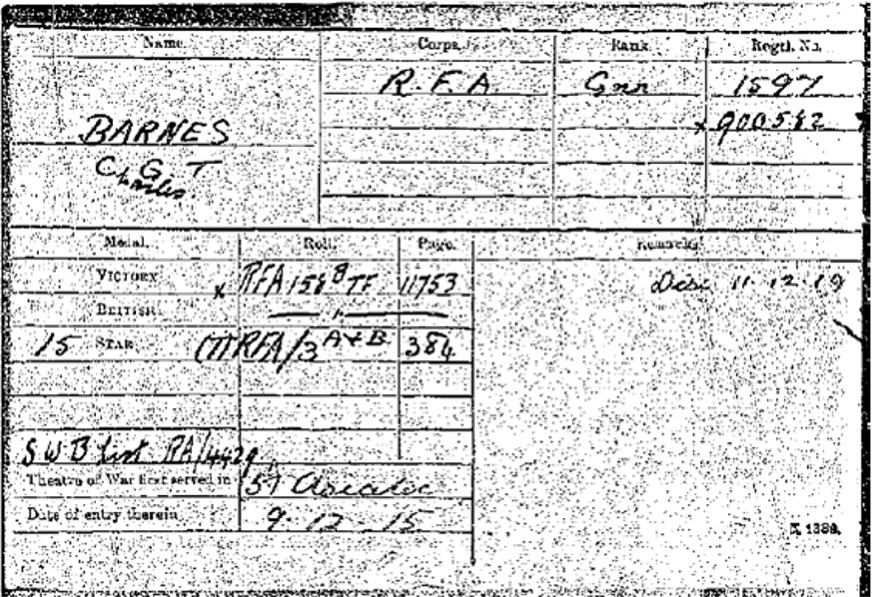 Name. Corps. Rank. Regtl. No.
R.F.A. Gnr 1597
BARNES x 900582
C. G. T
Charles.
Medal. Roll. Page. Remarks.
VICTORY x RFA/158 B TF 11753 Dis. 11.12.19
BRITISH — " —
15 STAR RFA/3 A+B 384
SWB list RA/4429
Theatre of War first served in (5) Asiatic
Date of entry therein 9-12-15
K. 1380.